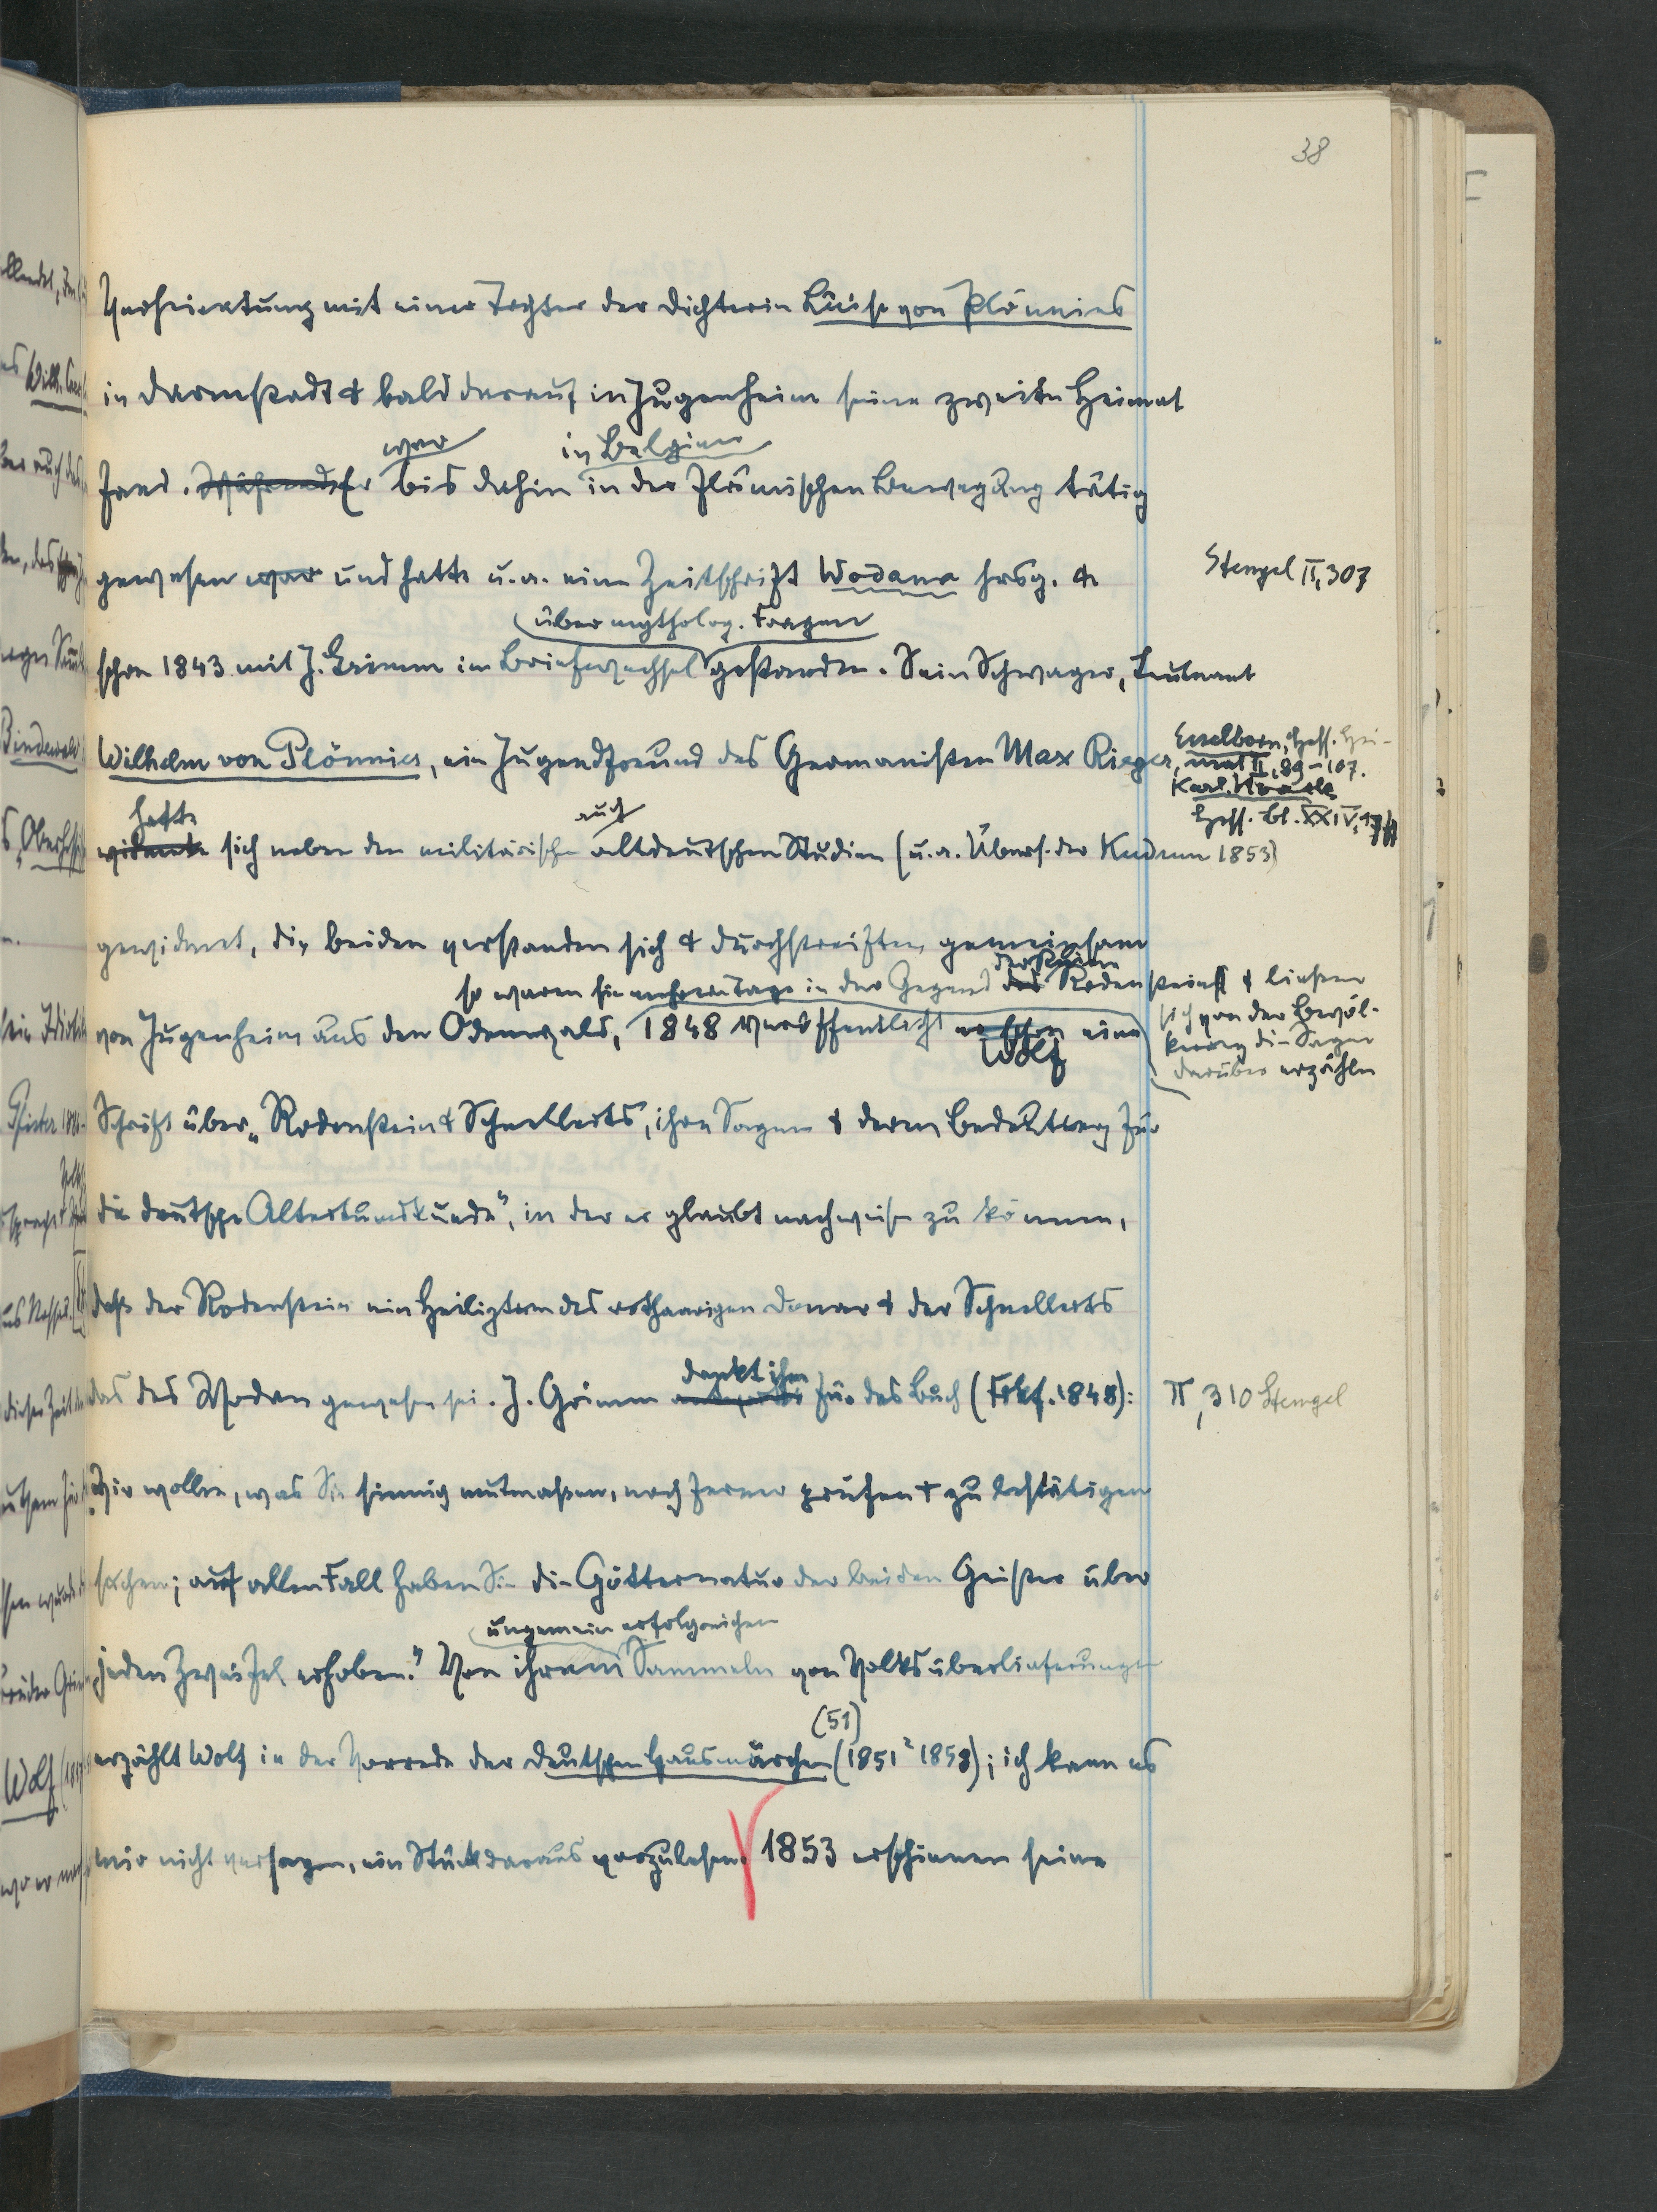 38
Verheiratung mit einer Tochter der Dichterin Luise von Plönnies
in Darmstadt & bald darauf in Jugenheim seine zweite Heimat
war in Belgien
fand. Während Er bis dahin in der flämischen Bewegung tätig
gewesen war und hatte u. a. eine Zeitschrift Wodana hrsg. &
Stengel II, 307
über mytholog. Fragen
schon 1843 mit J. Grimm im Briefwechsel gestanden. Sein Schwager, Leutnant
Wilhelm von Plönnies, ein Jugendfreund des Germanisten Max Rieger,
Esselborn, Hess. Hei-
mat II, 89-107.
Karl
Hess. Bl. XXIV,
hatte auch
widmete sich neben den militärischen altdeutschen Studien (u. a. Übers. der Kudrun 1853)
gewidmet, die beiden verstanden sich & durchstreiften gemeinsam
so waren sie mehrere Tage in der Gegend des der Ruine Rodenstein & liessen
sich von der Bevöl-
kerung die Sagen
darüber erzählen
von Jugenheim aus den Odenwald, 1848 veröffentlicht er schon Wolf eine
Schrift über „Rodenstein & Schnellerts, ihre Sagen & deren Bedeutung für
die deutsche Altertumskunde", in der er glaubt nachweisen zu können,
daß der Rodenstein ein Heiligtum des rothaarigen Donar & der Schnellerts
dankt ihm
das des Wodan gewesen sei. J. Grimm für das Buch (Frkf. 1848):
II, 310 Stengel
„Wir wollen, was Sie sinnig mutmaßen, noch ferner prüfen & zu bestätigen
suchen; auf allen Fall haben Sie die Götternatur der beiden Geister über
ungemein erfolgreichen
jeden Zweifel erhoben." Von ihrem Sammeln von Volksüberlieferungen
(51)
erzählt Wolf in der Vorrede der Deutschen Hausmärchen (1851 ² 1858); ich kann es
mir nicht versagen, ein Stück daraus vorzulesen. 1853 erschienen seine